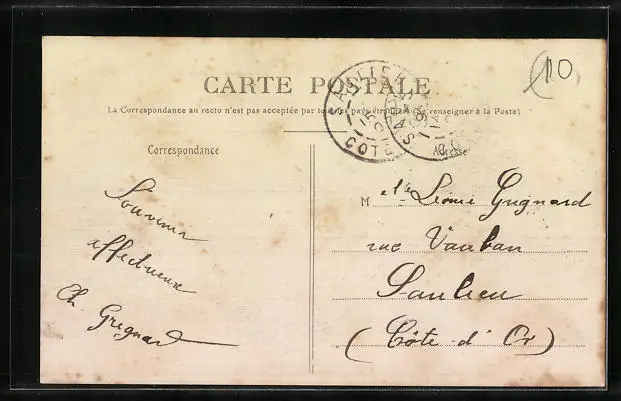 CARTE POSTALE
La Correspondance au recto n'est pas acceptée par tous les pays étrangers (Se renseigner à la Poste)
Correspondance
Adresse
Souvenir
affectueux
Ch. Grignard
Melle Léonie Grignard
rue Vauban
Saulieu
(Côte-d'Or)
COTE
10